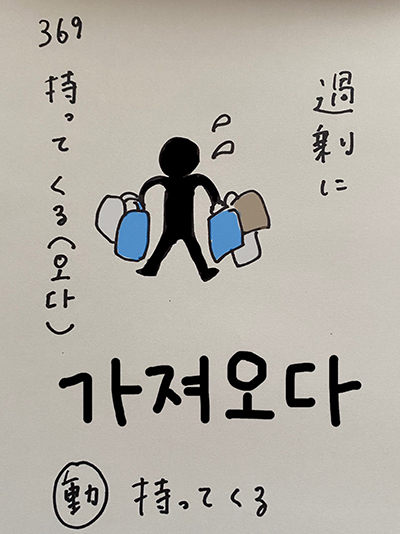 369
過剰に
持ってくる(오다)
가져오다
動 持ってくる